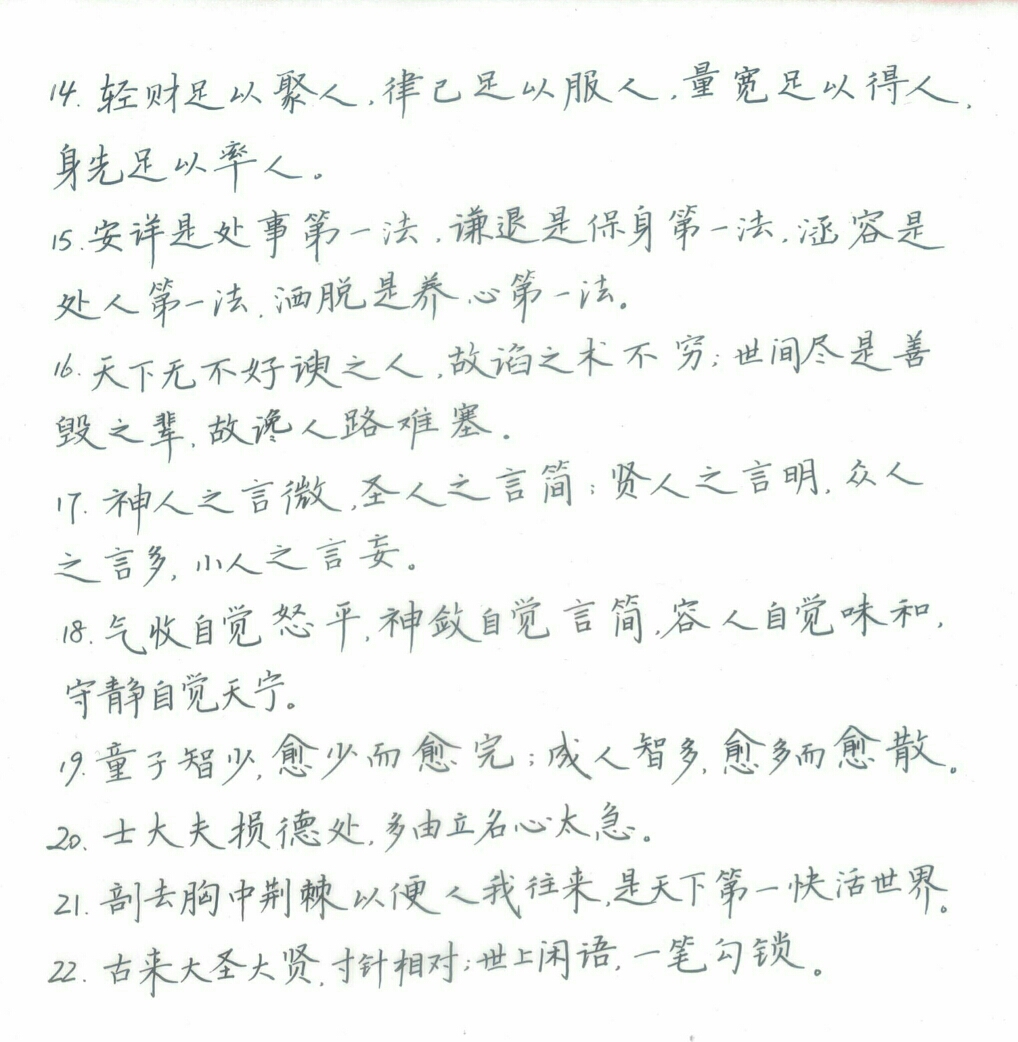 14. 轻财足以聚人,律己足以服人,量宽足以得人,
身先足以率人。
15. 安详是处事第一法,谦退是保身第一法,涵容是
处人第一法,洒脱是养心第一法。
16. 天下无不好谀之人,故谄之术不穷;世间尽是善
毁之辈,故谗人路难塞。
17. 神人之言微,圣人之言简;贤人之言明,众人
之言多,小人之言妄。
18. 气收自觉怒平,神敛自觉言简,容人自觉味和,
守静自觉天宁。
19. 童子智少,愈少而愈完;成人智多,愈多而愈散。
20. 士大夫损德处,多由立名心太急。
21. 剖去胸中荆棘以便人我往来,是天下第一快活世界。
22. 古来大圣大贤,寸针相对;世上闲语,一笔勾锁。